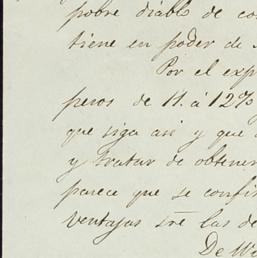 pobre diablo de co
tiene en poder de
Por el exp
pesos de 11. á 12%
que siga asi y que
y tratar de obtener
parece que se confir
ventajas sre las de
De Wa